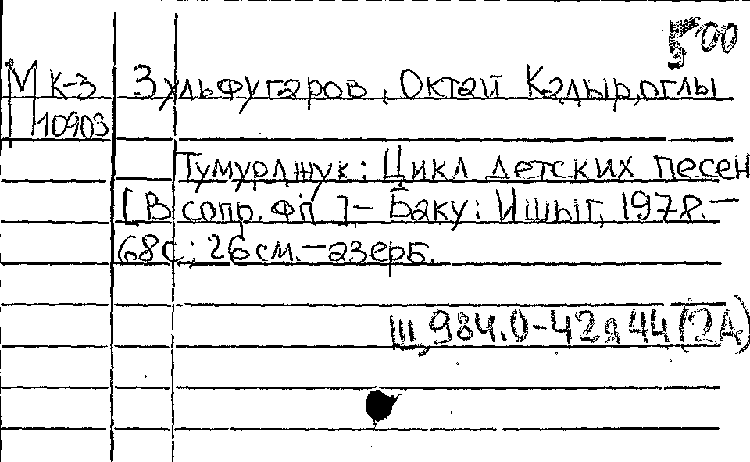 500
М К-3 Зульфугаров, Октай Кадыр,оглы
10903
Тумурджук: Цикл детских песен
[В сопр. фп ]- Баку: Ишыг, 1978.-
68с; 26 см.-азерб.
Щ984.0-42я44(2А)